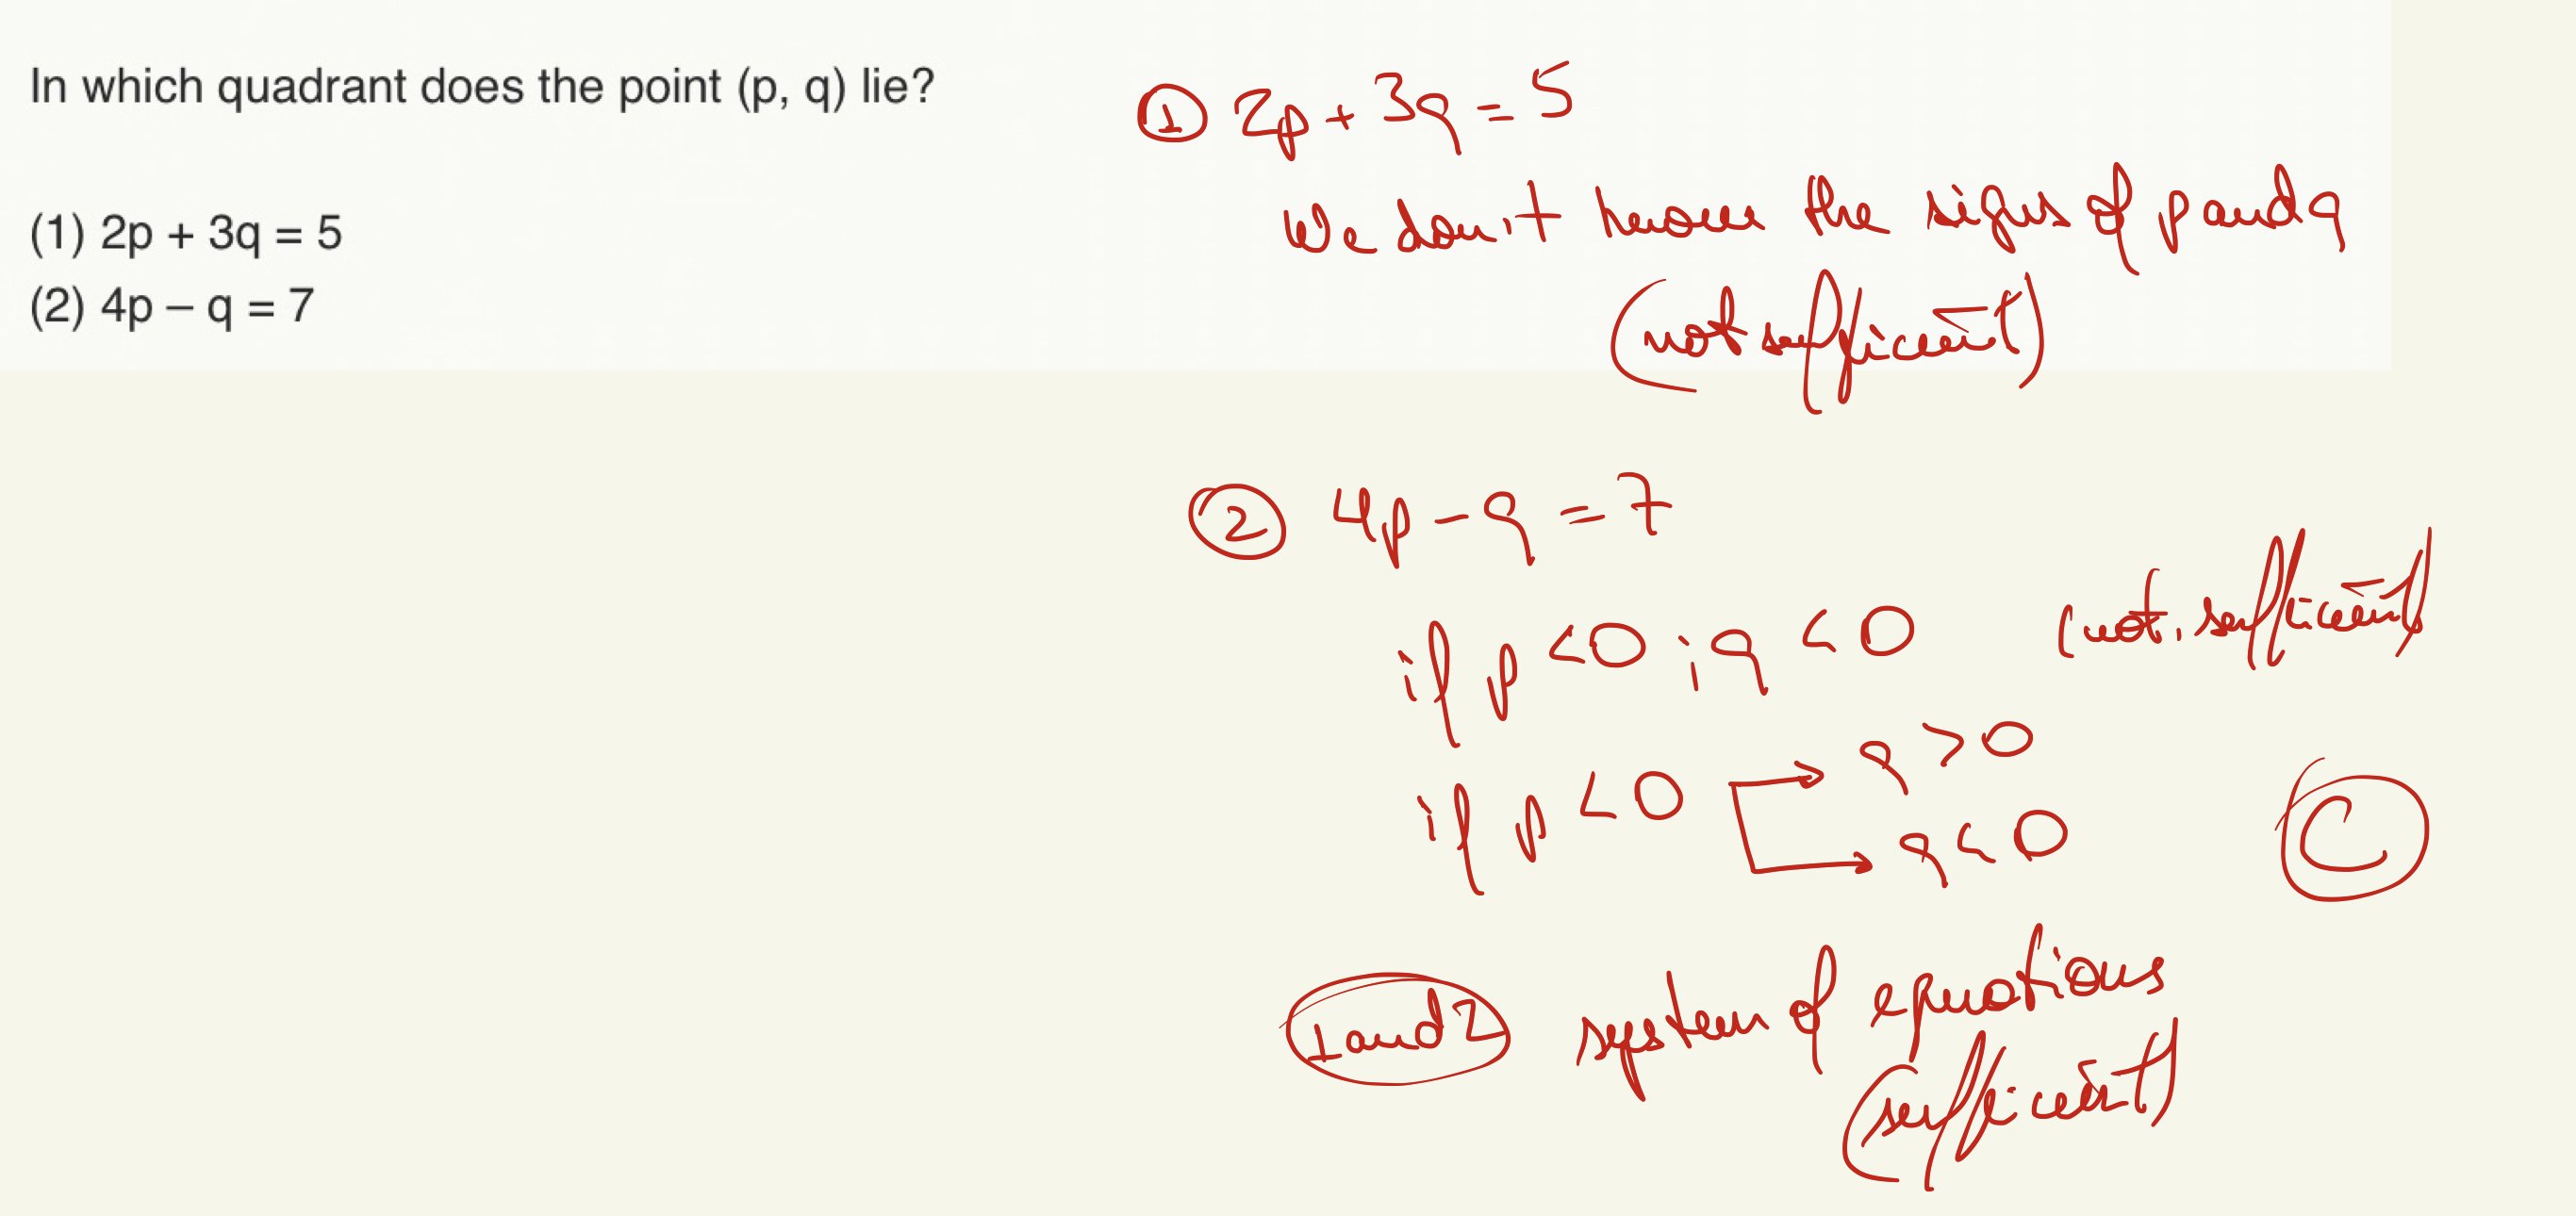 In which quadrant does the point (p, q) lie?
(1) 2p + 3q = 5
(2) 4p – q = 7
① 2p + 3q = 5
We don't know the signs of p and q
(not sufficient)
② 4p - q = 7
if p <0 ; q < 0 (not sufficient)
if p < 0 → q > 0
→ q < 0
C
1 and 2 system of equations
(sufficient)